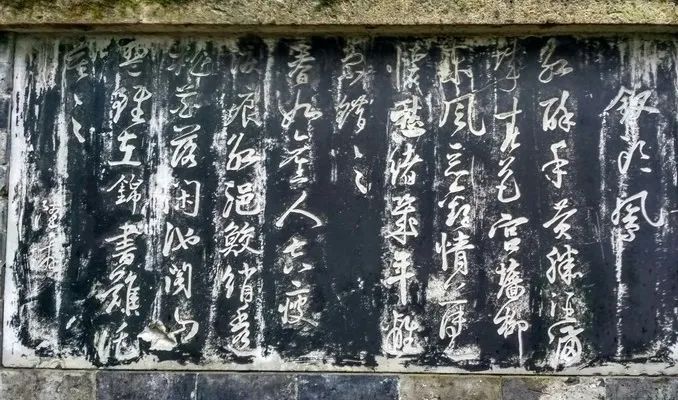 釵頭鳳
紅酥手黃縢酒滿
城春色宮牆柳
東風惡歡情薄一
懷愁緒幾年離
索錯々々
春如舊人空瘦
淚痕紅浥鮫綃透
桃花落閑池閣山
盟雖在錦書難托
莫々々
陸游